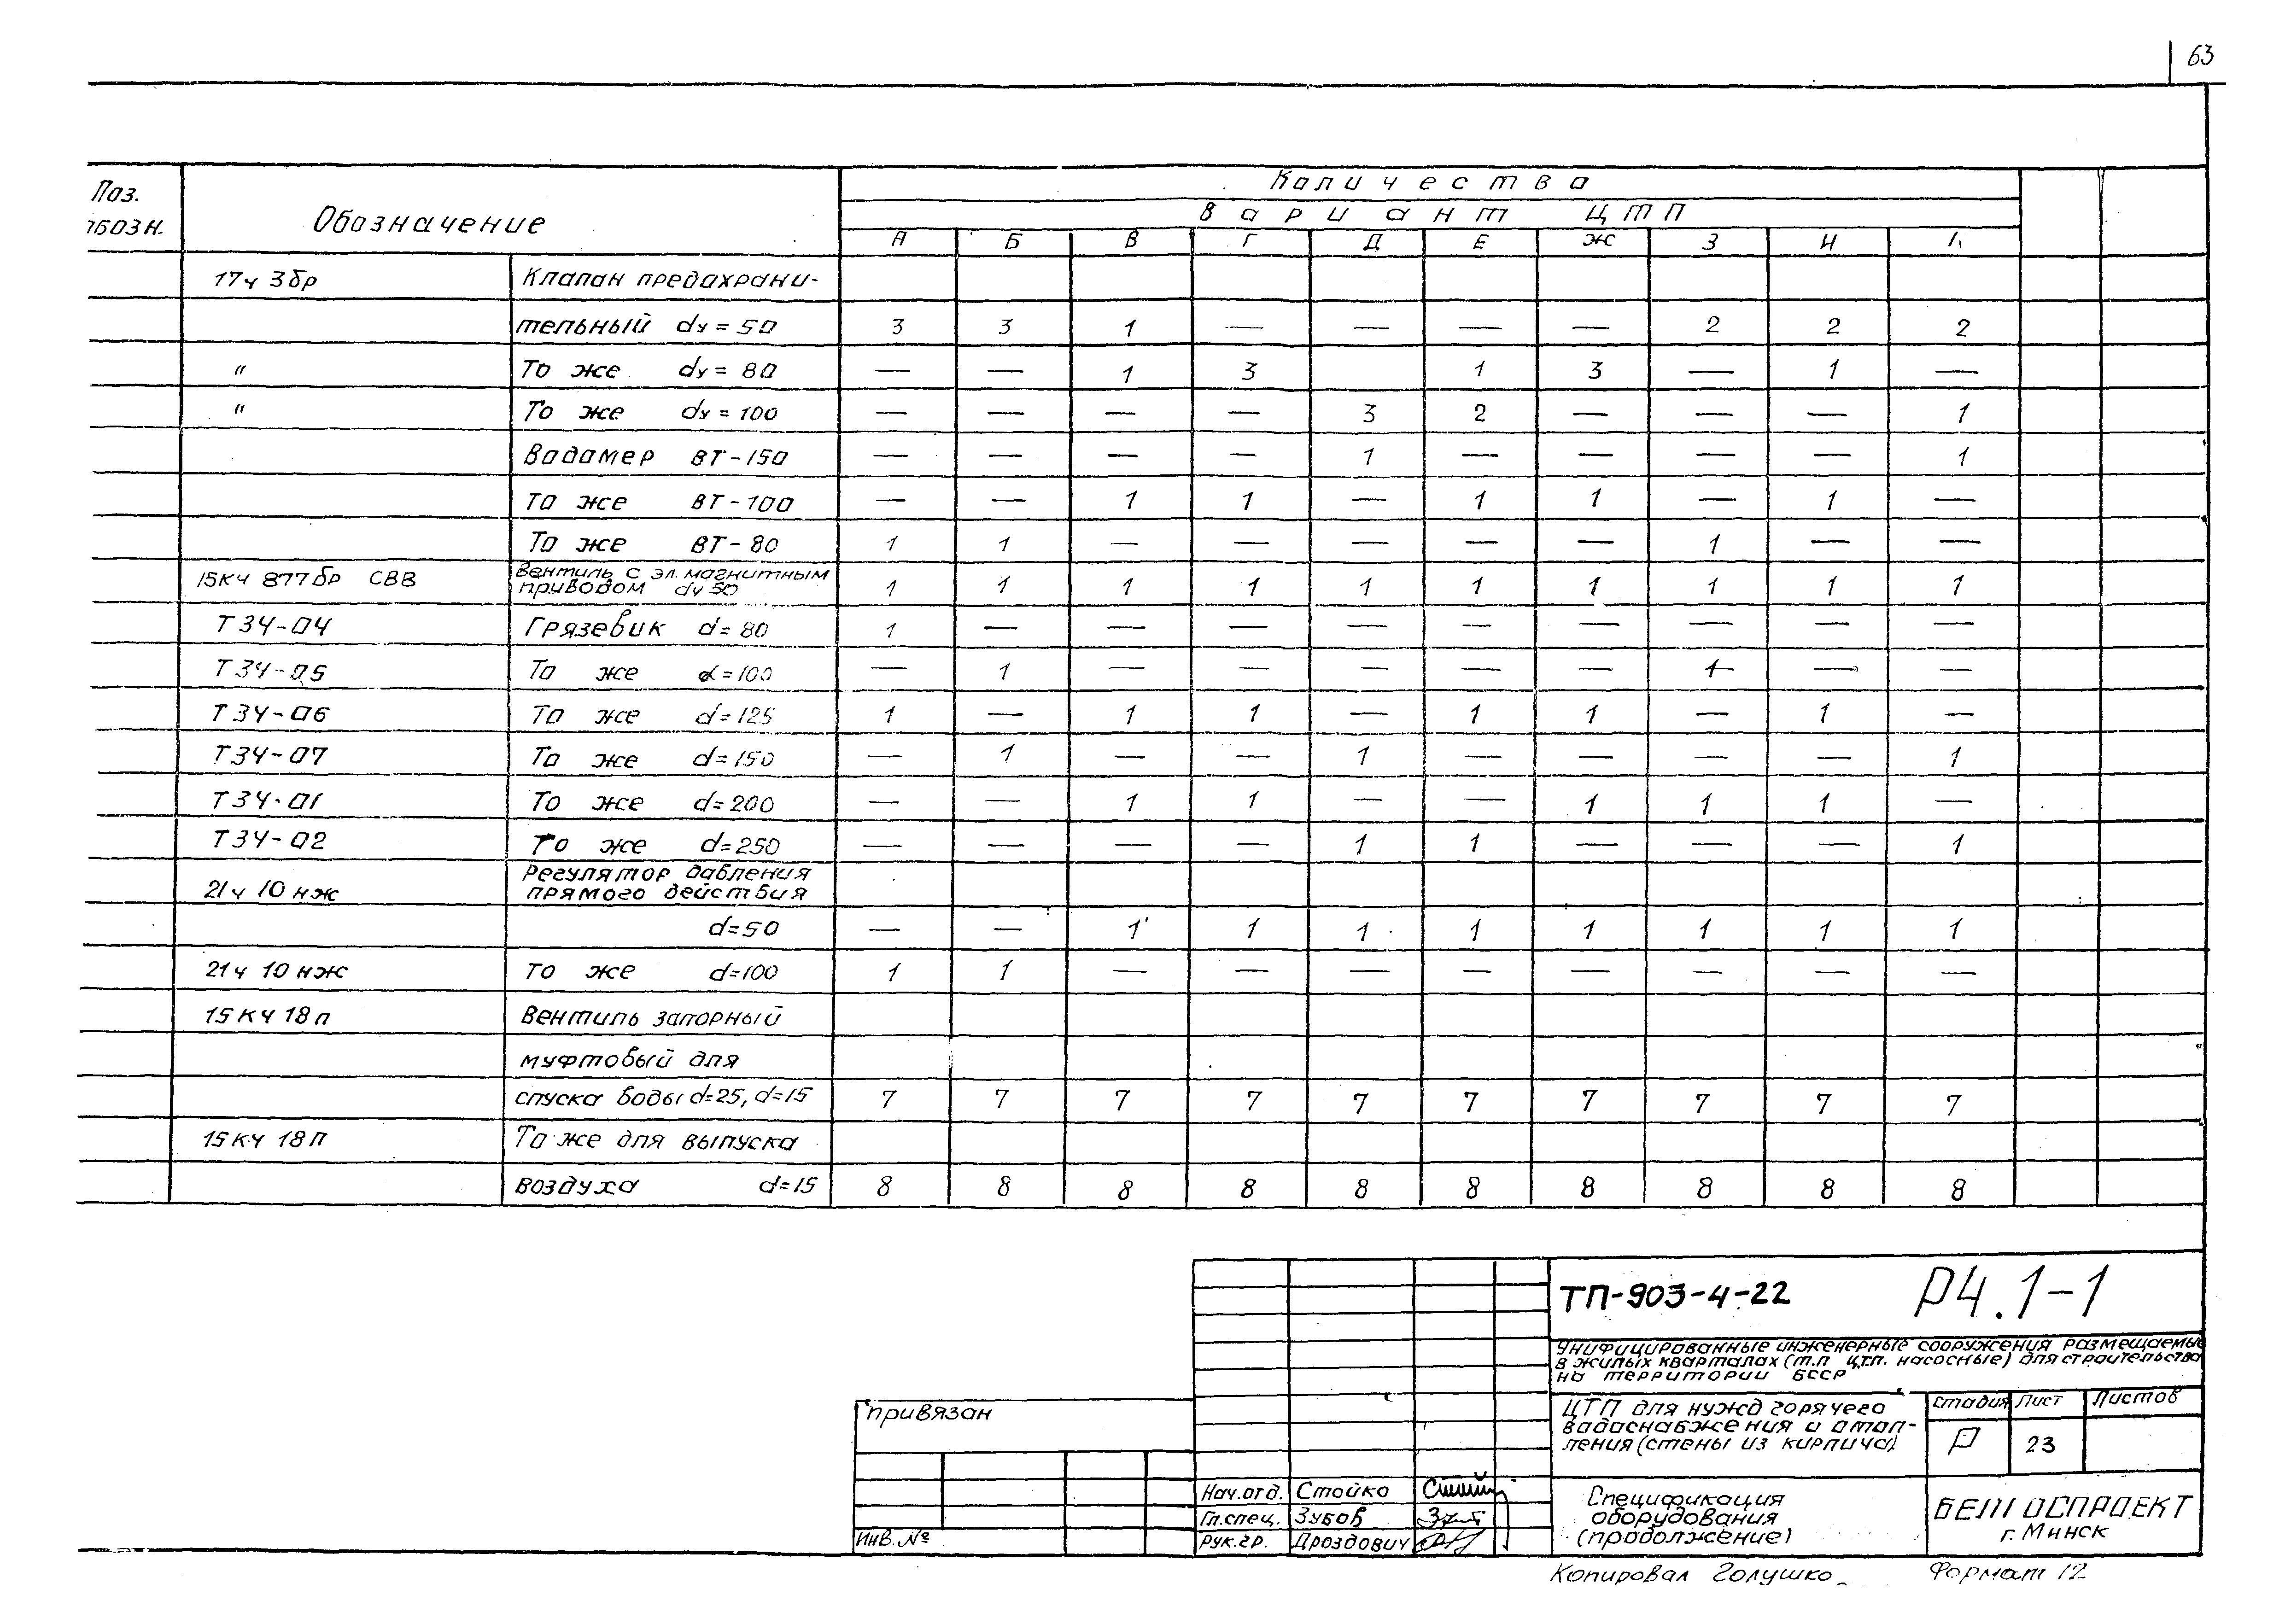 63
Поз. Обозначение Количество
обозн. Вариант ЦТП
А Б В Г Д Е Ж З И
17ч 3бр Клапан предохрани-
тельный dу = 50 3 3 1 — — — — 2 2 2
" То же dу = 80 — — 1 3 1 3 — 1 —
" То же dу = 100 — — — — 3 2 — — — 1
Водомер ВТ-150 — — — — 1 — — — — 1
То же ВТ-100 — — 1 1 — 1 1 — 1 —
То же ВТ-80 1 1 — — — — — 1 — —
15кч 877бр СВВ Вентиль с эл. магнитным
приводом dу 50 1 1 1 1 1 1 1 1 1 1
Т34-04 Грязевик d=80 1 — — — — — — — — —
Т34-05 То же d=100 — 1 — — — — — 1 — —
Т34-06 То же d=125 1 — 1 1 — 1 1 — 1 —
Т34-07 То же d=150 — 1 — — 1 — — — — 1
Т34-01 То же d=200 — — 1 1 — — 1 1 1 —
Т34-02 То же d=250 — — — — 1 1 — — — 1
Регулятор давления
21ч 10нж прямого действия
d=50 — — 1 1 1 1 1 1 1 1
21ч 10нж То же d=100 1 1 — — — — — — — —
15кч 18п Вентиль запорный
муфтовый для
спуска воды d=25, d=15 7 7 7 7 7 7 7 7 7 7
15кч 18п То же для выпуска
воздуха d=15 8 8 8 8 8 8 8 8 8 8
ТП-903-4-22 Р4.1-1
Унифицированные инженерные сооружения размещаемые
в жилых кварталах (т.п. ц.т.п. насосные) для строительства
на территории БССР
Привязан
Инв. №
ЦТП для нужд горячего
водоснабжения и отоп-
ления (стены из кирпича)
Стадия Лист Листов
Р 23
Нач.отд. Стойко
Гл.спец. Зубов
Рук.гр. Дроздович
Спецификация
оборудования
(продолжение)
БЕЛГОСПРОЕКТ
г. Минск
Копировал Голушко Формат 12